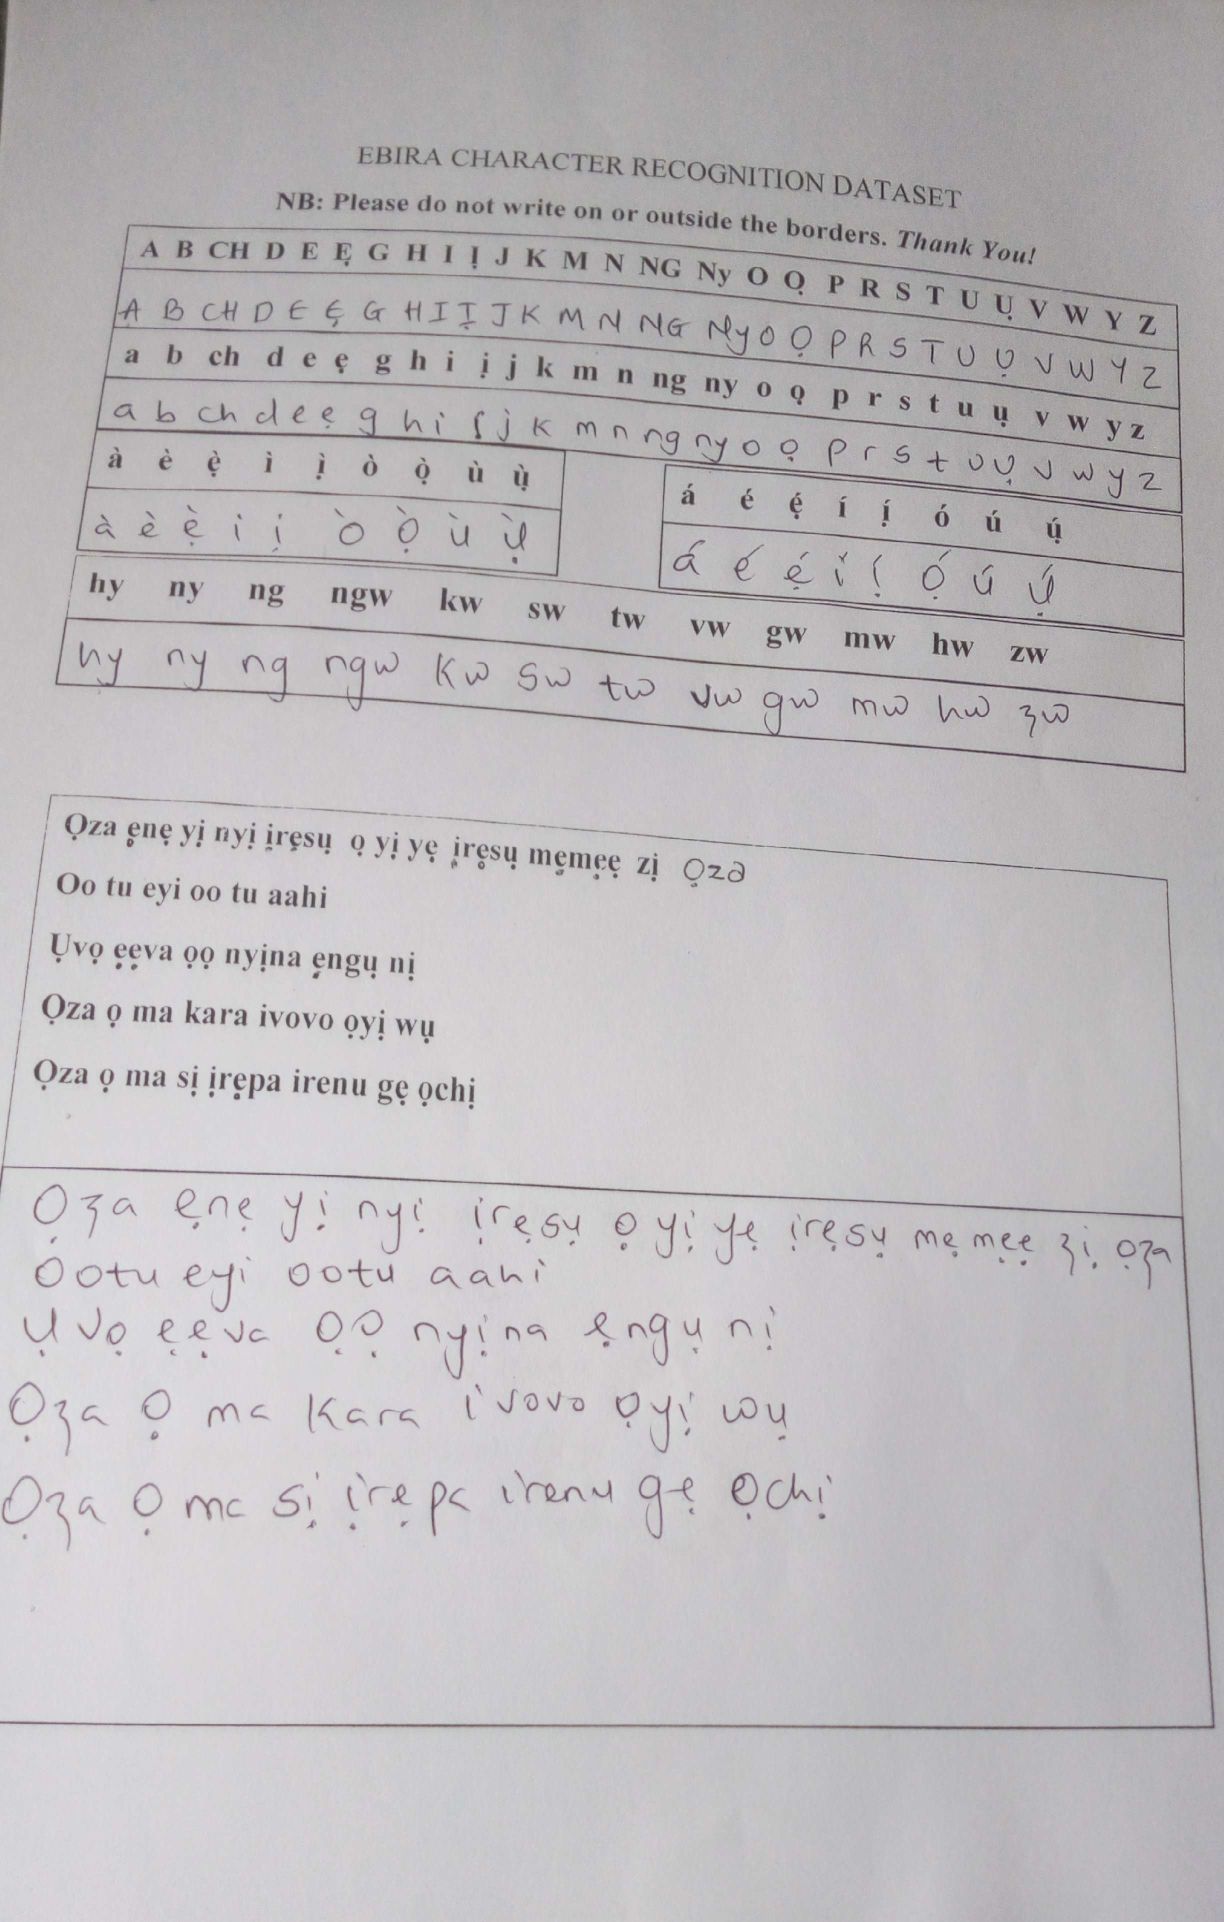 EBIRA CHARACTER RECOGNITION DATASET
NB: Please do not write on or outside the borders. Thank You!
A B CH D E Ẹ G H I Ị J K M N NG Ny O Ọ P R S T U Ụ V W Y Z
A B CH D E Ẹ G H I Ị J K M N NG Ny O Ọ P R S T U Ụ V W Y Z
a b ch d e ẹ g h i ị j k m n ng ny o ọ p r s t u ụ v w y z
a b ch d e ẹ g h i ị j k m n ng ny o ọ p r s t u ụ v w y z
à è ẹ̀ ì ị̀ ò ọ̀ ù ụ̀
à è ẹ̀ ì ị̀ ò ọ̀ ù ụ̀
á é ẹ́ í ị́ ó ú ụ́
á é ẹ́ í ị́ ọ́ ú ụ́
hy ny ng ngw kw sw tw vw gw mw hw zw
hy ny ng ngw kw sw tw vw gw mw hw zw
Ọza ẹnẹ yị nyị ịrẹsụ ọ yị yẹ ịrẹsụ mẹmẹẹ zị ọza
Oo tu eyi oo tu aahi
Ụvọ ẹẹva ọọ nyịna ẹngụ nị
Ọza ọ ma kara ivovo ọyị wụ
Ọza ọ ma sị ịrẹpa irenu gẹ ọchị
Ọza ẹnẹ yị nyị ịrẹsụ ọ yị yẹ ịrẹsụ mẹmẹẹ zị ọza
Ootu eyi ootu aahi
Ụvọ ẹẹva ọọ nyịna ẹngụ nị
Ọza ọ ma kara ivovo ọyị wụ
Ọza ọ ma sị ịrẹpa irenu gẹ ọchị